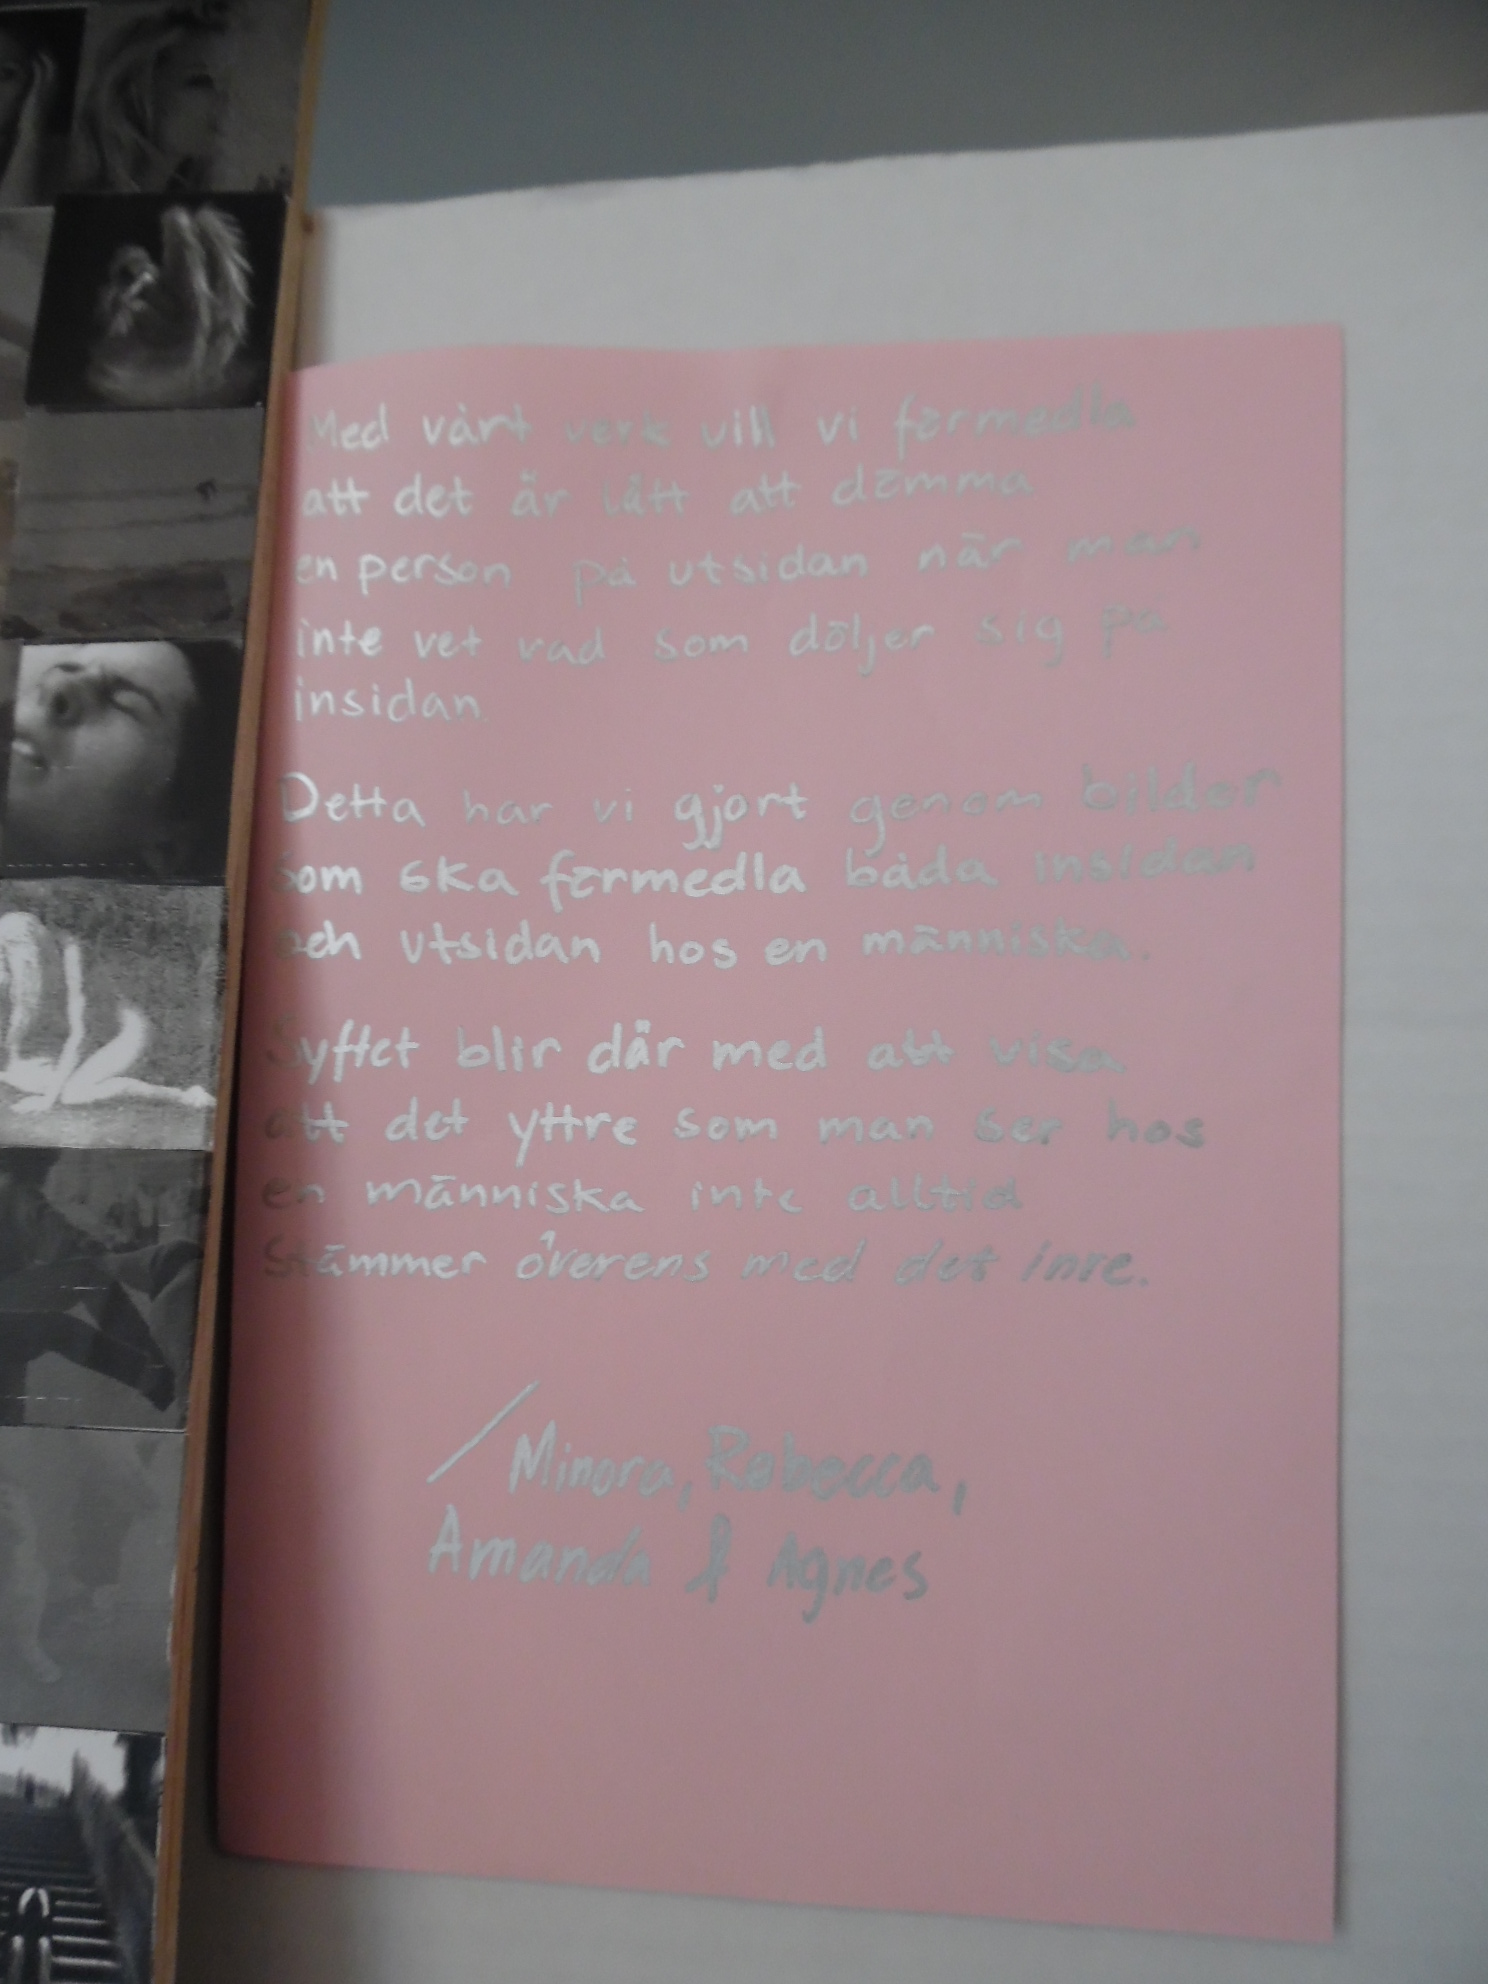 Med vårt verk vill vi förmedla
att det är lätt att döma
en person på utsidan när man
inte vet vad som döljer sig på
insidan.
Detta har vi gjort genom bilder
som ska förmedla båda insidan
och utsidan hos en människa.
Syftet blir där med att visa
att det yttre som man ser hos
en människa inte alltid
stämmer överens med det inre.
/Minora, Rebecca,
Amanda & Agnes